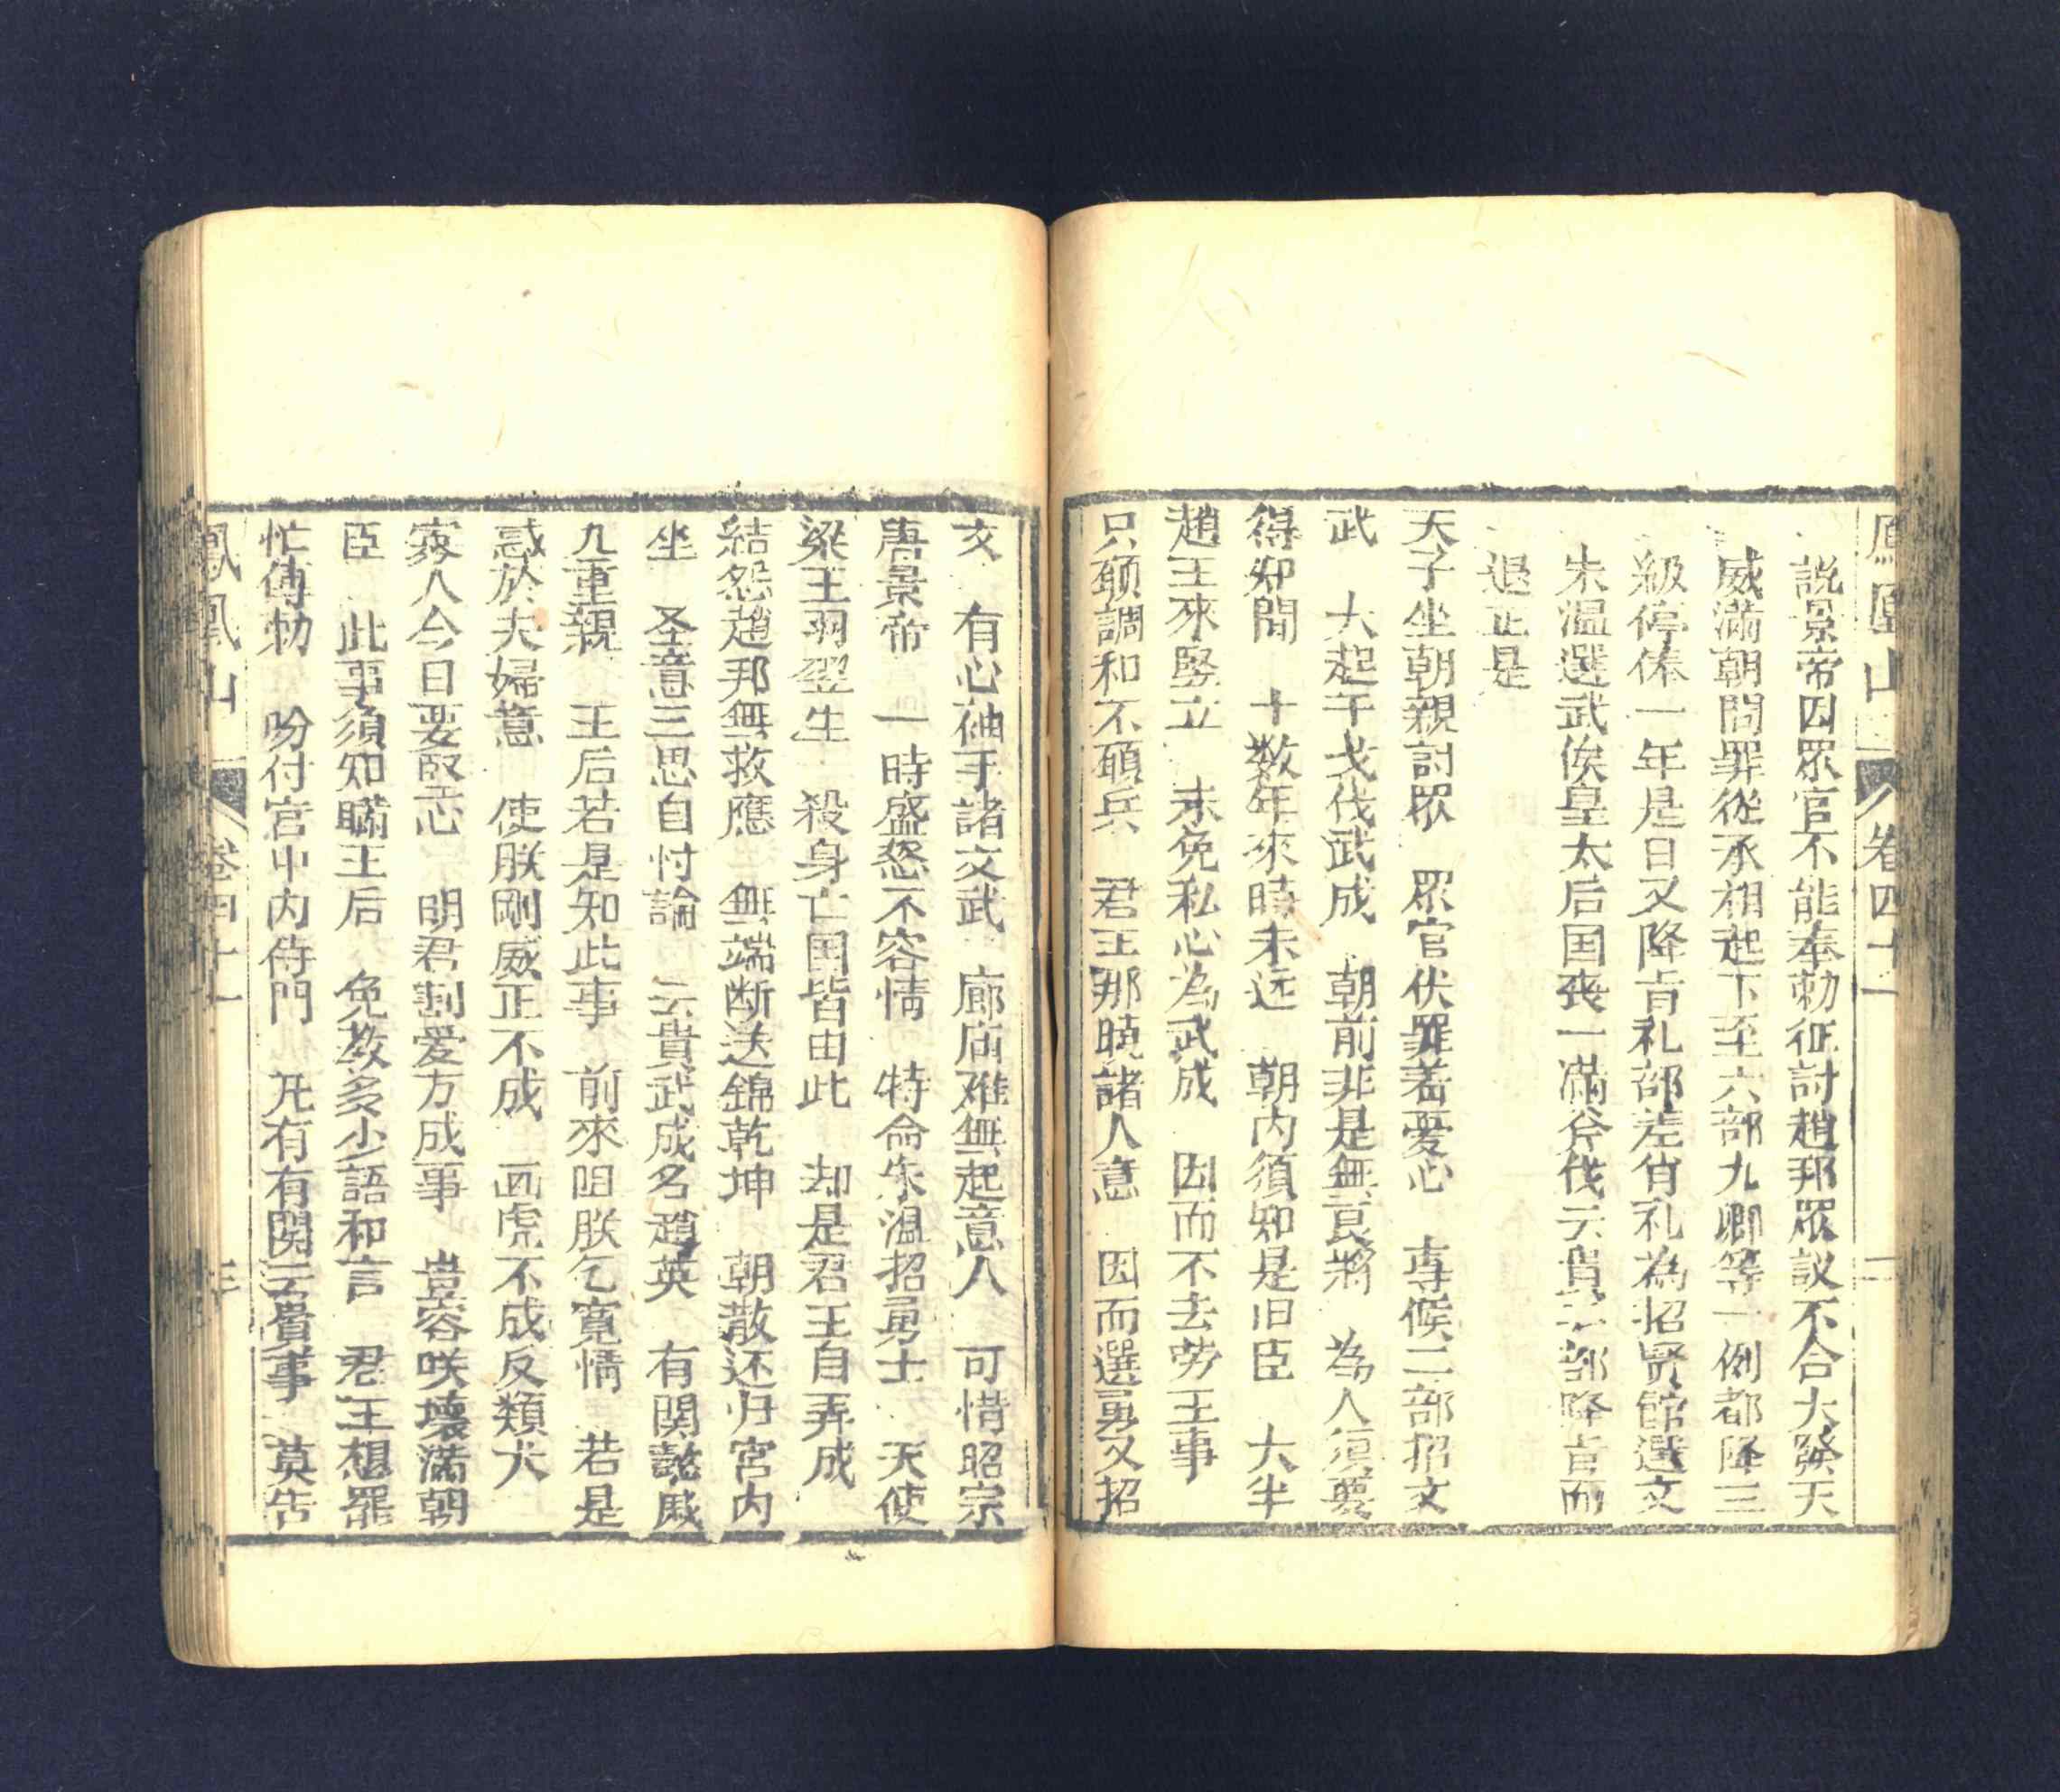 鳳凰山 卷四十一 二
說景帝因眾官不能奉勅征討趙邦眾議不合大發天
威滿朝問罪從丞相起下至六部九卿等一例都降三
級停俸一年是日又降旨礼部差官礼為招賢館選文
朱温選武俟皇太后国丧一滿斧伐云貴二部降旨而
退正是
天子坐朝親討眾 眾官伏罪若憂心 専候二部招文
武 大起干戈伐武成 朝前非是無良將 為人須要
得知聞 十数年來時未远 朝内須知是旧臣 大半
趙王來竪立 未免私心為武成 因而不去劳王事
只願調和不願兵 君王那曉諸人意 因而選勇又招
文 有心袖手諸文武 廊庙难無起意人 可惜昭宗
唐景帝 一時盛怒不容情 特命朱温招勇士 天使
梁王羽翌生 殺身亡国皆由此 却是君王自弄成
結怨趙邦無救應 無端断送錦乾坤 朝散还归宮内
坐 圣意三思自忖論 云貴武成名趙英 有関懿戚
九重親 王后若是知此事 前來咀朕乞寬情 若是
惑於夫婦意 使朕剛威正不成 画虎不成反類犬
寡人今日要堅志 明君割爱方成事 豈容咲壞滿朝
臣 此事須知瞞王后 免教多少語和言 君王想罷
忙傳勅 吩付宫中内侍門 凡有有関云貴事 莫告
鳳凰山 卷四十一 三